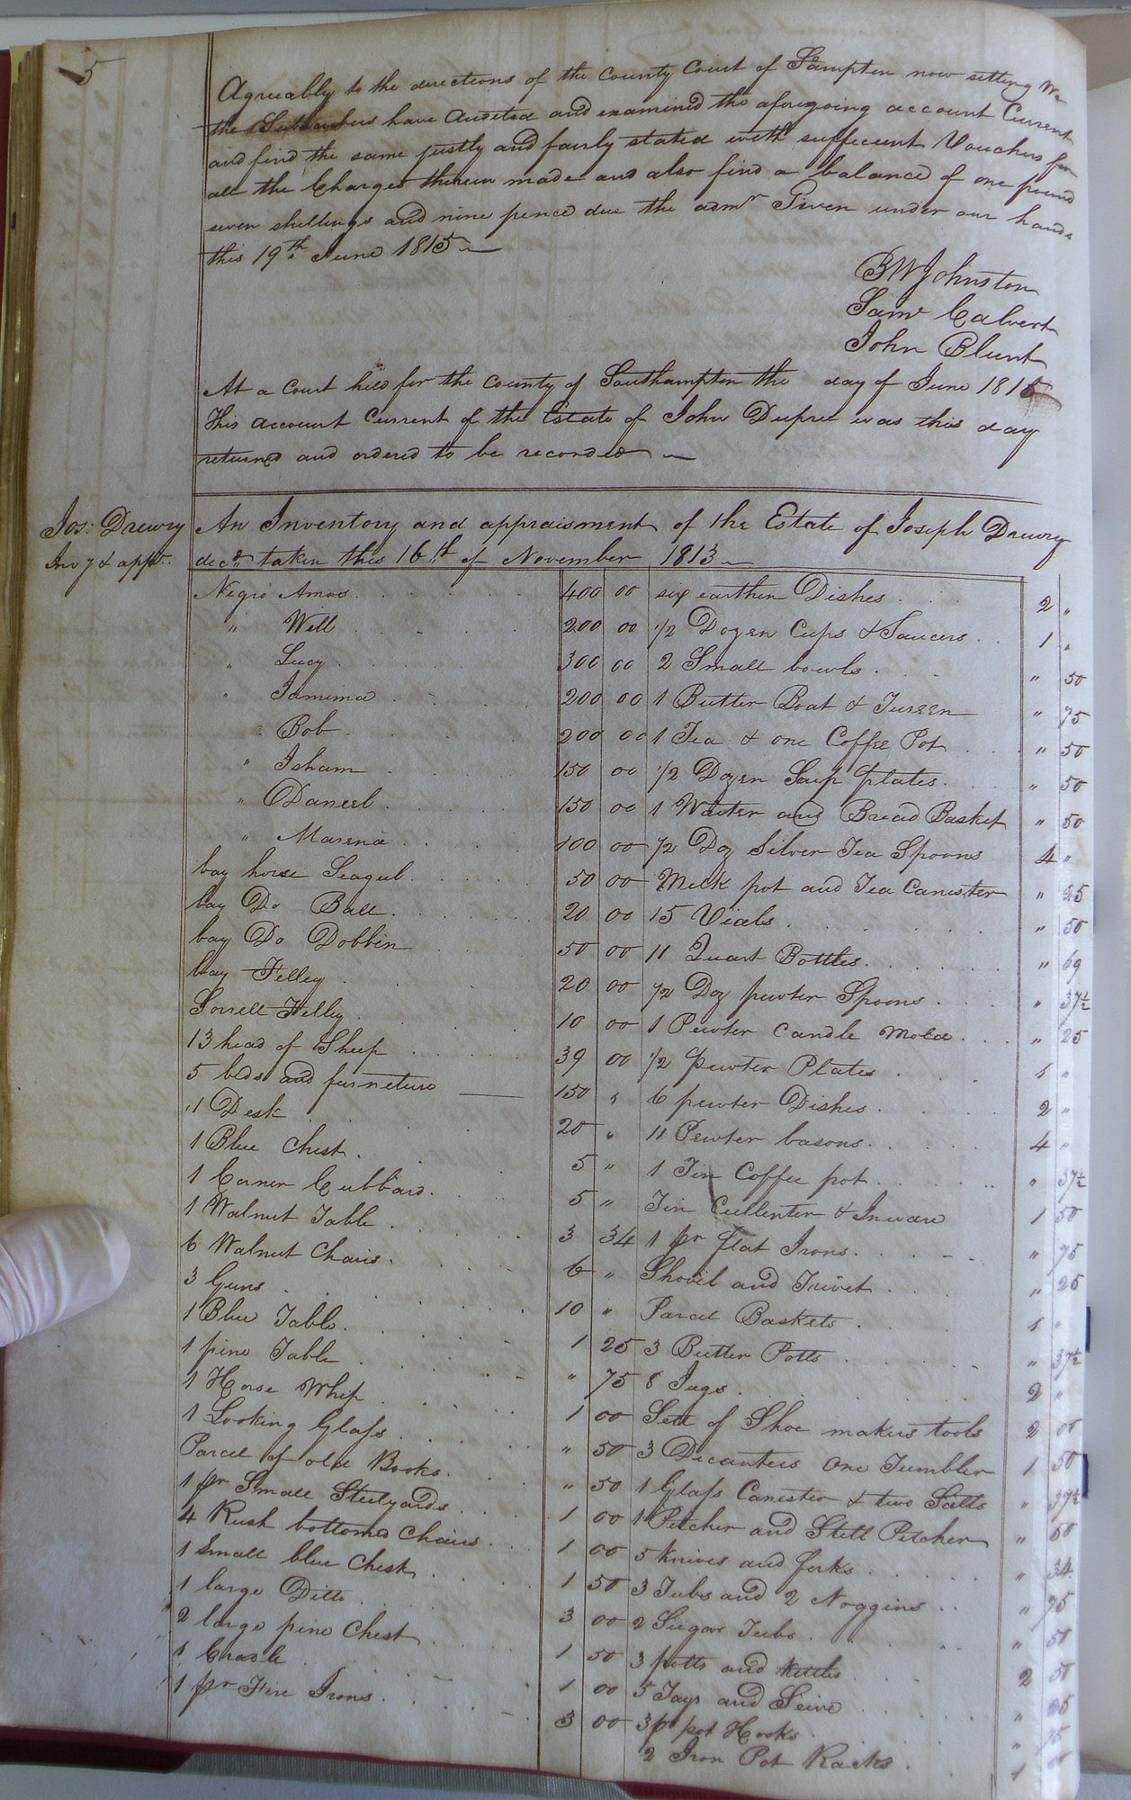 5
Agreeably to the directions of the County Court of Sampton now setting We
the Subscribers have Audited and examined the aforegoing account Current
and find the same justly and fairly stated with suffecient Vouchers for
all the Charges therein made and also find a balance of one pound
seven shillings and nine pence due the admr Given under our hands
this 19th June 1815
BWJohnston
Saml Calvert
John Blunt
At a Court held for the County of Southampton the day of June 1815
This account Current of the Estate of John Dupree was this day
returned and ordered to be recorded
Jos: Drewry
Invy & appt.
An Inventory and appraisment of the Estate of Joseph Drewry
decd. taken this 16th of November 1813
Negro Amos 400 00
" Will 200 00
" Lucy 300 00
" Jamima 200 00
" Bob 200 00
" Isham 150 00
" Daniel 150 00
" Marena 100 00
bay horse Seagul 50 00
bay Do Ball 20 00
bay Do Dobbin 50 00
bay Filley 20 00
Sorrell Filley 10 00
13 head of Sheep 39 00
5 beds and furneture 150 "
1 Desk 20 "
1 Blue Chest 5 "
1 Corner Cubbard 5 "
1 Walnut Table 3 34
6 Walnut Chairs 6 "
3 Guns 10 "
1 Blue Table 1 25
1 pine Table " 75
1 Horse Whip 1 00
1 Looking Glass " 50
Parcel of old Books " 50
1 pr Small Steelyards 1 00
4 Rush bottomed Chairs 1 00
1 Small blue Chest 1 50
1 large Ditto 3 00
2 large pine Chest 1 50
1 Cradle 1 00
1 pr Fire Irons 3 00
six earthen Dishes 2 "
1/2 Dozen Cups & Saucers 1 "
2 Small bowls " 50
1 Butter Boat & Tureen " 75
1 Tea & one Coffee Pot " 50
1/2 Dozen Soup plates " 50
1 Waiter and Bread Basket " 50
1/2 Doz Silver Tea Spoons 4 "
Milk pot and Tea Canester " 25
15 Vials " 50
11 Quart Bottles " 69
1/2 Doz pewter Spoons " 37½
1 Pewter Candle Mold " 25
1/2 pewter Plates 1 "
6 pewter Dishes 2 "
11 Pewter basons 4 "
1 Tin Coffee pot " 37½
Tin Cullenter & Inware 1 50
1 pr flat Irons " 75
Shovil and Trivet " 25
Parcel Baskets 1 "
3 Butter Potts " 37½
8 Jugs 2 "
Sett of Shoe makers tools 2 00
3 Decanters One Tumbler 1 50
1 Glass Canester & two Salts " 37½
1 Pitcher and Still Pitcher " 50
5 Knives and forks " 34
3 Tubs and 2 Noggins " 75
2 Sugar Tubs " 50
3 potts and kettles 2 50
5 Jays and Seive "
3 pr pot Hooks " 75
2 Iron Pot Racks 1 00